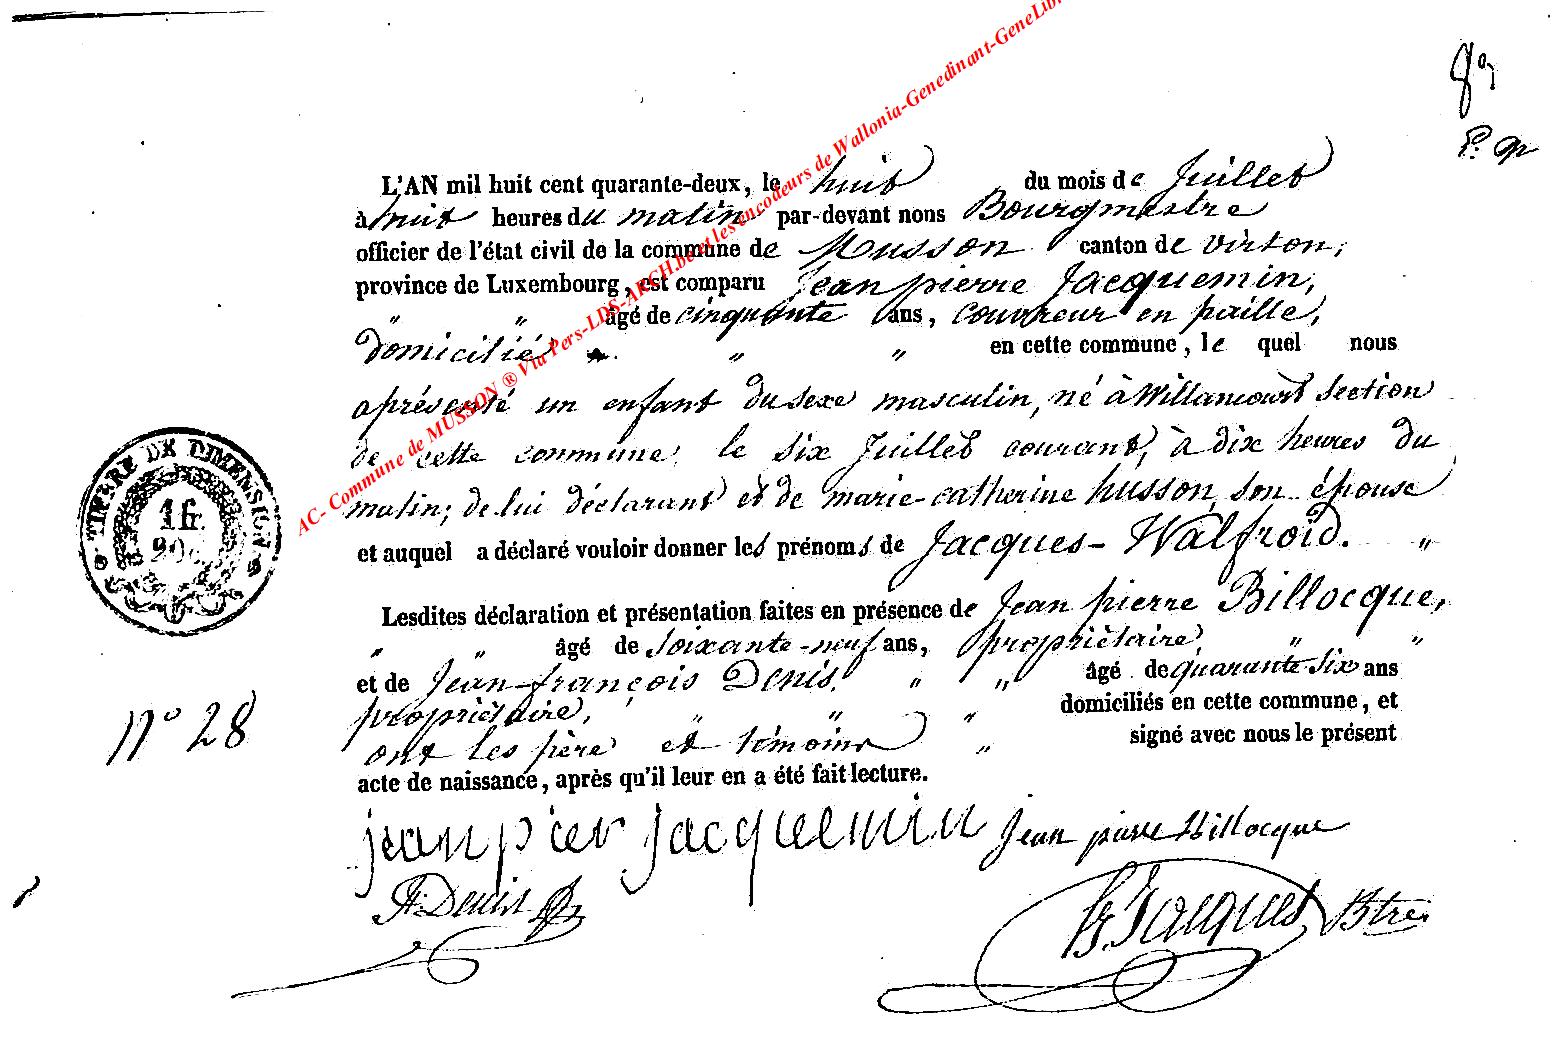 AC- Commune de MUSSON ® Via Pers-LDS-ARCH.be et les encodeurs de Wallonia-Genedinant-GeneLib
L'AN mil huit cent quarante-deux, le huit du mois de Juillet
à huit heures du matin par-devant nous Bourgmestre
officier de l'état civil de la commune de Musson canton de virton,
province de Luxembourg, est comparu Jean pierre Jacquemin,
" " âgé de cinquante ans, couvreur en paille,
domicilié " " " en cette commune, le quel nous
a présenté un enfant du sexe masculin, né à Willancourt section
de cette commune, le six Juillet courant, à dix heures du
matin; de lui déclarant et de marie-catherine husson, son épouse
et auquel a déclaré vouloir donner les prénoms de Jacques-Walfroid. "
Lesdites déclaration et présentation faites en présence de Jean pierre Billocque,
" " âgé de soixante-neuf ans, propriétaire, " "
et de Jean-françois Denis, " " âgé de quarante six ans
propriétaire, " " " domiciliés en cette commune, et
ont les père et témoins " signé avec nous le présent
acte de naissance, après qu'il leur en a été fait lecture.
TIMBRE DE DIMENSION
1f
N° 28
jean pier jacquemin Jean piere Billocque
Denis
Jacques Btre